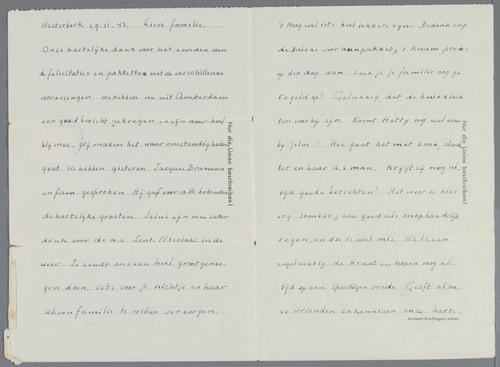 Westerbork 29.11.43. Lieve familie
Onze hartelijke dank voor het zenden van
de felicitaties en pakketten met de verschillende
verrassingen. We hebben nu uit Amsterdam
een goed bericht gekregen en zijn daar heel
blij mee. Wij maken het naar omstandigheden
goed. We hebben gisteren Jacques
en fam. gesproken. Hij gaf voor alle bekenden
de hartelijke groeten. Jelui zijn nu zeker
druk voor de a.s. Sint. Nicolaas in de
weer. Je zoudt ons een heel groot genoe-
gen doen, iets voor je nichtje en haar
schoonfamilie te willen verzorgen.
Nur die Linien beschreiben!
't Mag wel iets heel lekkers zijn. Bedank s.v.p
de voor hun pakket, 't kwam precies
op den dag aan. Zoek je je familie nog ge-
regeld op? Gelukkig, dat de
ten voorbij zijn. Komt Hetty nog wel eens
bij jelui? Hoe gaat het met
ter en haar a.s. man. Krijgt zij nog al-
tijd goede berichten? Het weer is hier
erg somber, zoo goed als onophoudelijk
regen, en nu is het mis. We lezen
regelmatig de krant en hopen nog al-
tijd op een spoedigen vrede. Geeft al on-
ze vrienden en kennissen onze harte-
Nur die Linien beschreiben!
Antwort-Briefbogen anbei.